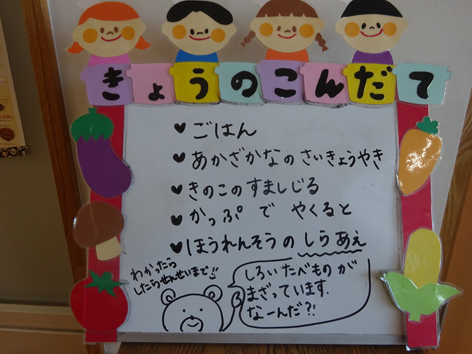 きょうのこんだて
♥ごはん
♥あかざかなのさいきょうやき
♥きのこのすましじる
♥かっぷで やくると
♥ほうれんそうのしらあえ
わかったら
したらせんせいまで!!
しろいたべものが
まざっています。
なーんだ?!